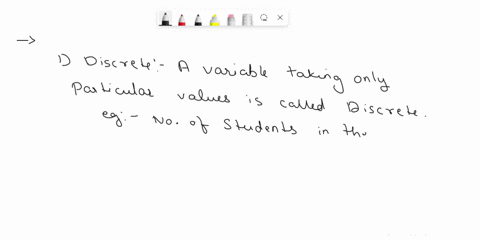 →
1) Discrete:- A variable taking only
Particular values is called Discrete.
eg:- No. of Students in th